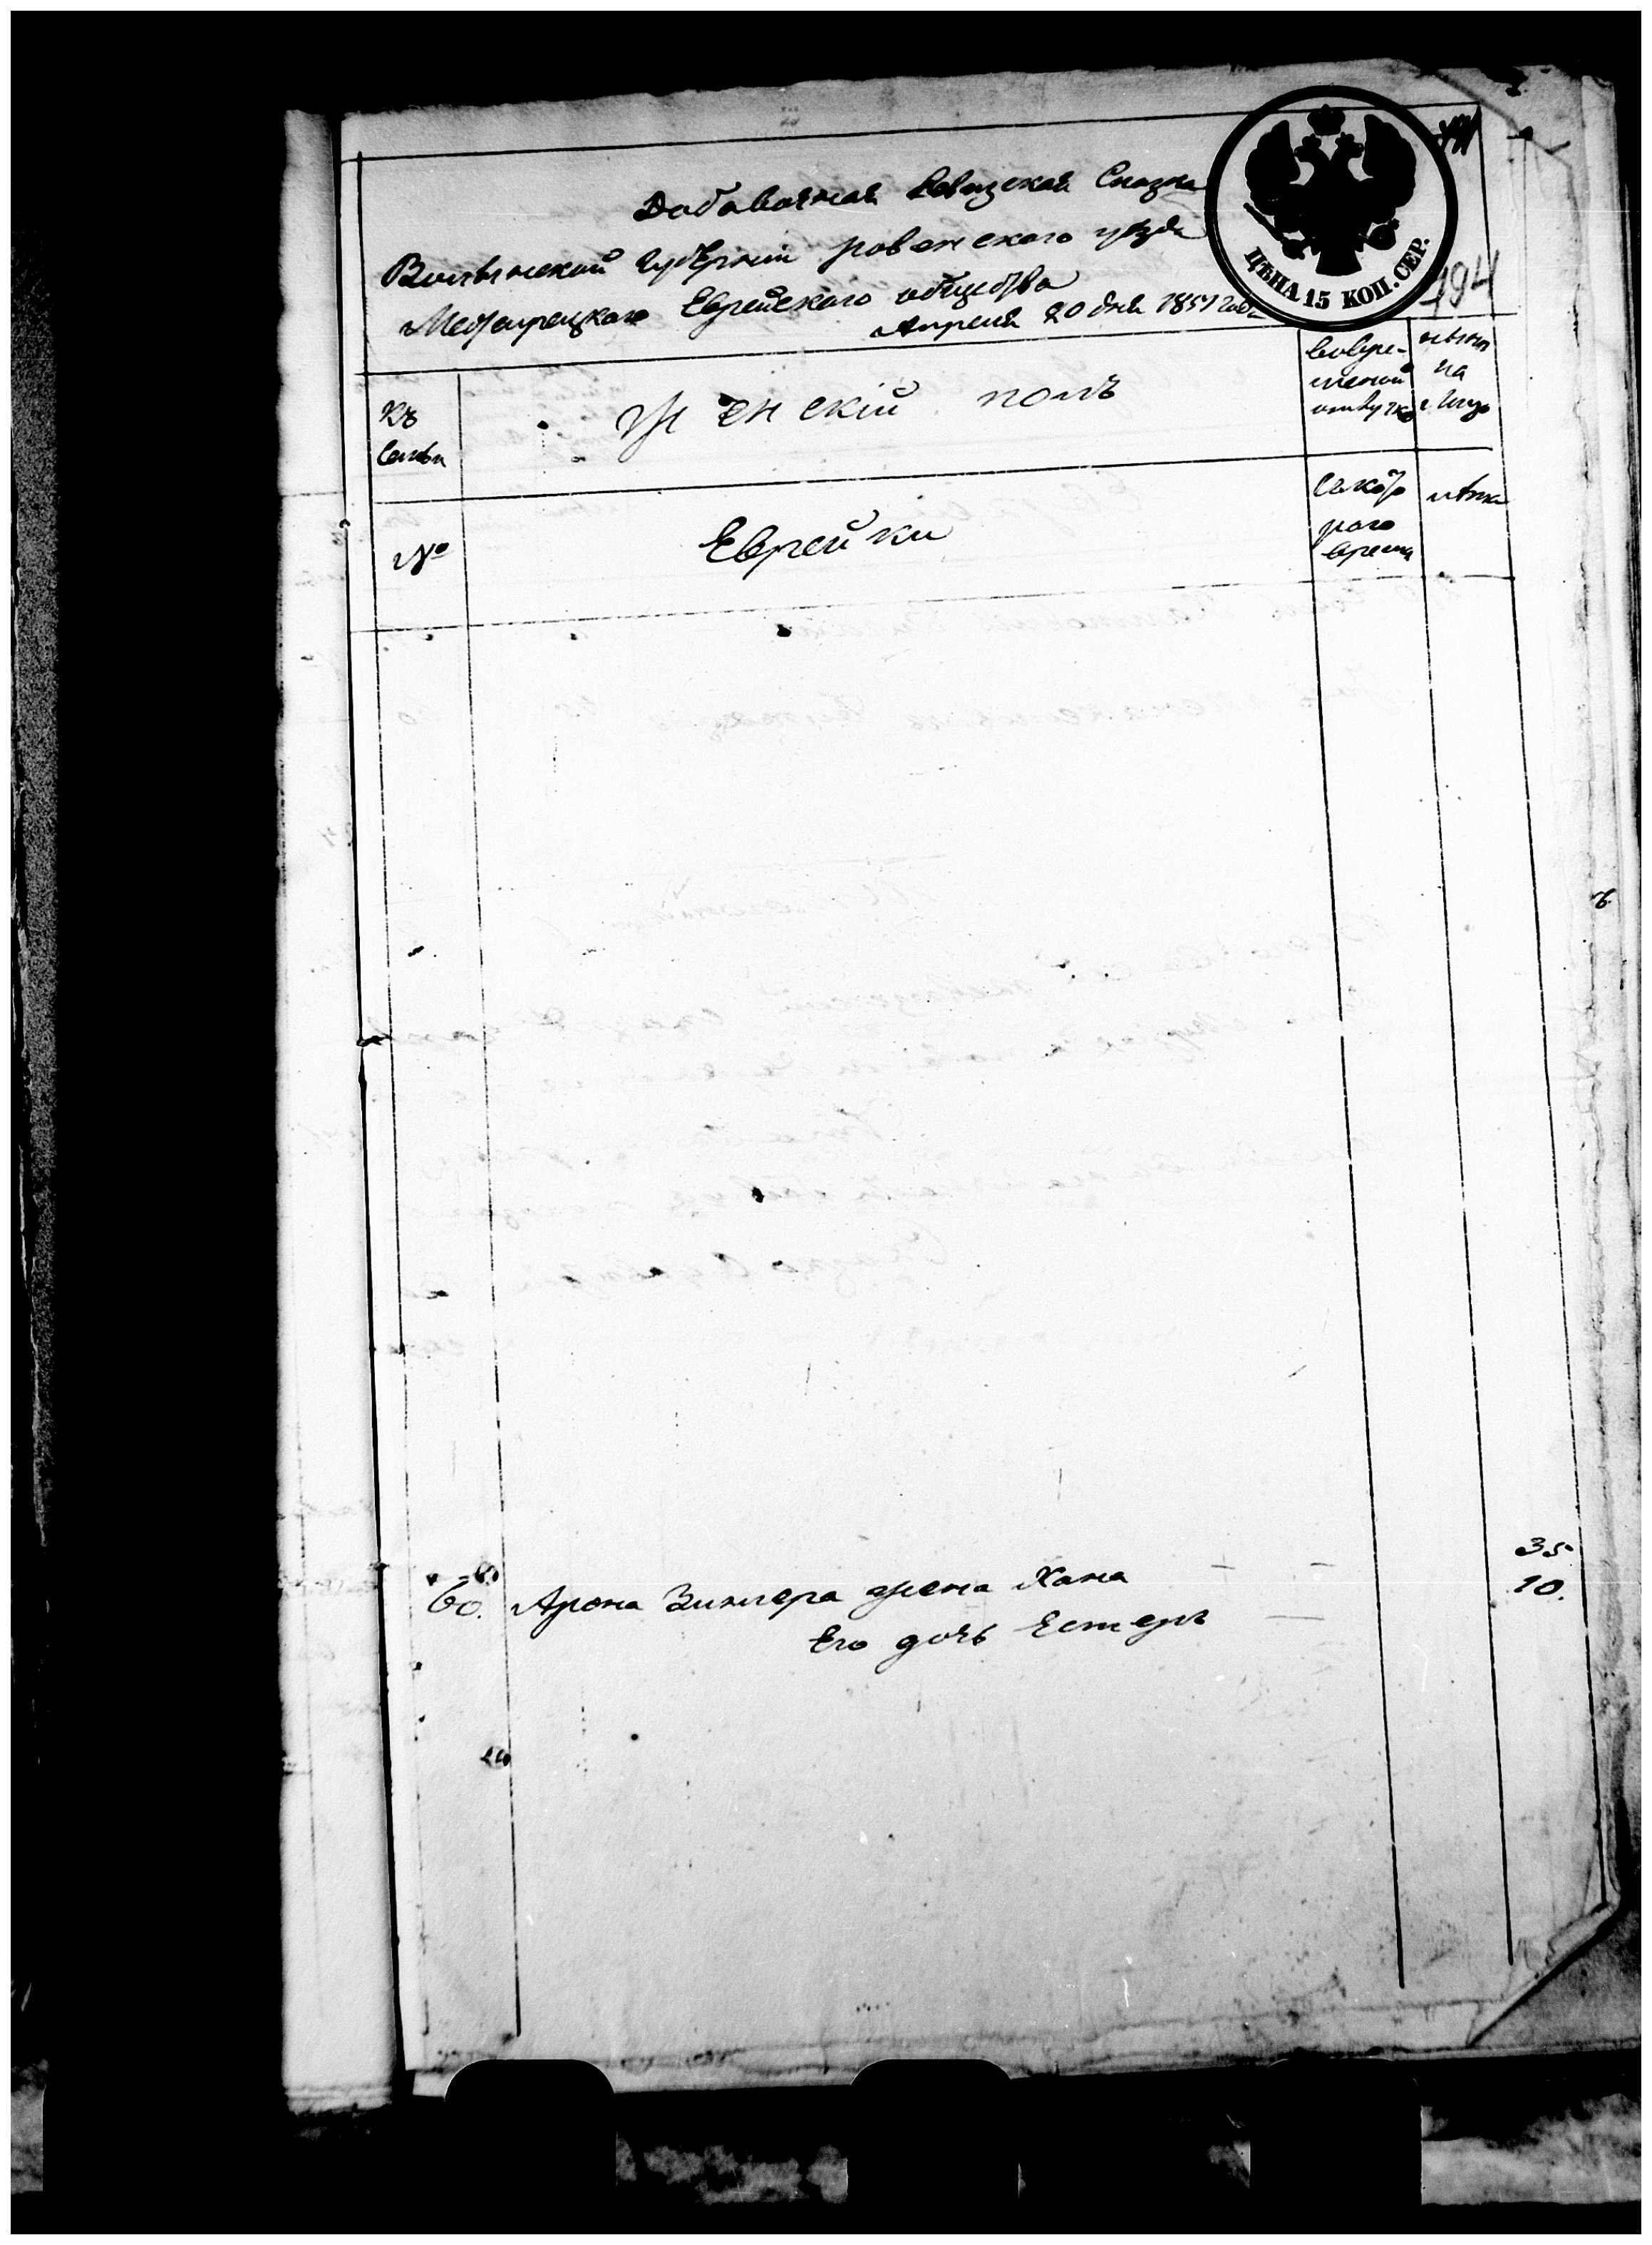 Добавочная Ревизская Сказка
Волынской Губернiи ровенского уезда
Межирецкаго Еврейскаго общества
Апреля 20 дня 1851 года
ЦѢНА 15 КОП. СЕР.
194
Къ
Семьи
Женскiй полъ
вовре-
менной
отлучке
ныне
на
лицо
№
Еврейки
Съ кото
раго
времени
лета
60. Арона Зиммера жена Хана 35
Его дочь Естеръ 10.